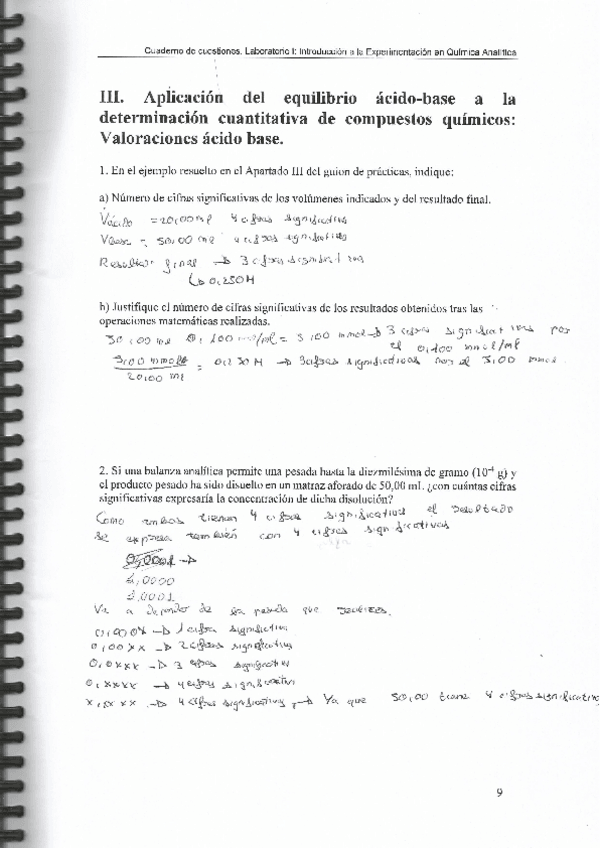 Cuaderno de cuestiones. Laboratorio I: Introducción a la Experimentación en Química Analítica
III. Aplicación del equilibrio ácido-base a la
determinación cuantitativa de compuestos químicos:
Valoraciones ácido base.
1. En el ejemplo resuelto en el Apartado III del guion de prácticas, indique:
a) Número de cifras significativas de los volúmenes indicados y del resultado final.
Vácido = 20,00 ml 4 cifras significativas
Vbase = 50,00 ml 4 cifras significativas
Resultado final → 3 cifras significativas
↳ 0,250M
b) Justifique el número de cifras significativas de los resultados obtenidos tras las
operaciones matemáticas realizadas.
0,100 mmol/ml = 3,00 mmol → 3 cifras significativas por
el 0,100 mmol/ml
3,00 mmol
20,00 ml
= → 3 cifras significativas por el 3,00 mmol
2. Si una balanza analítica permite una pesada hasta la diezmilésima de gramo (10⁻⁴ g) y
el producto pesado ha sido disuelto en un matraz aforado de 50,00 mL ¿con cuántas cifras
significativas expresaría la concentración de dicha disolución?
Como ambos tienen 4 cifras significativas el resultado
se expresa también con 4 cifras significativas
1,0000
1,0001
Va a depender de la pesada que
0,000X → 1 cifra significativa
0,00XX → 2 cifras significativas
0,0XXX → 3 cifras significativas
0,XXXX → 4 cifras significativas
X,XXXX → 4 cifras significativas, → Ya que 50,00 tiene 4 cifras significativas
9